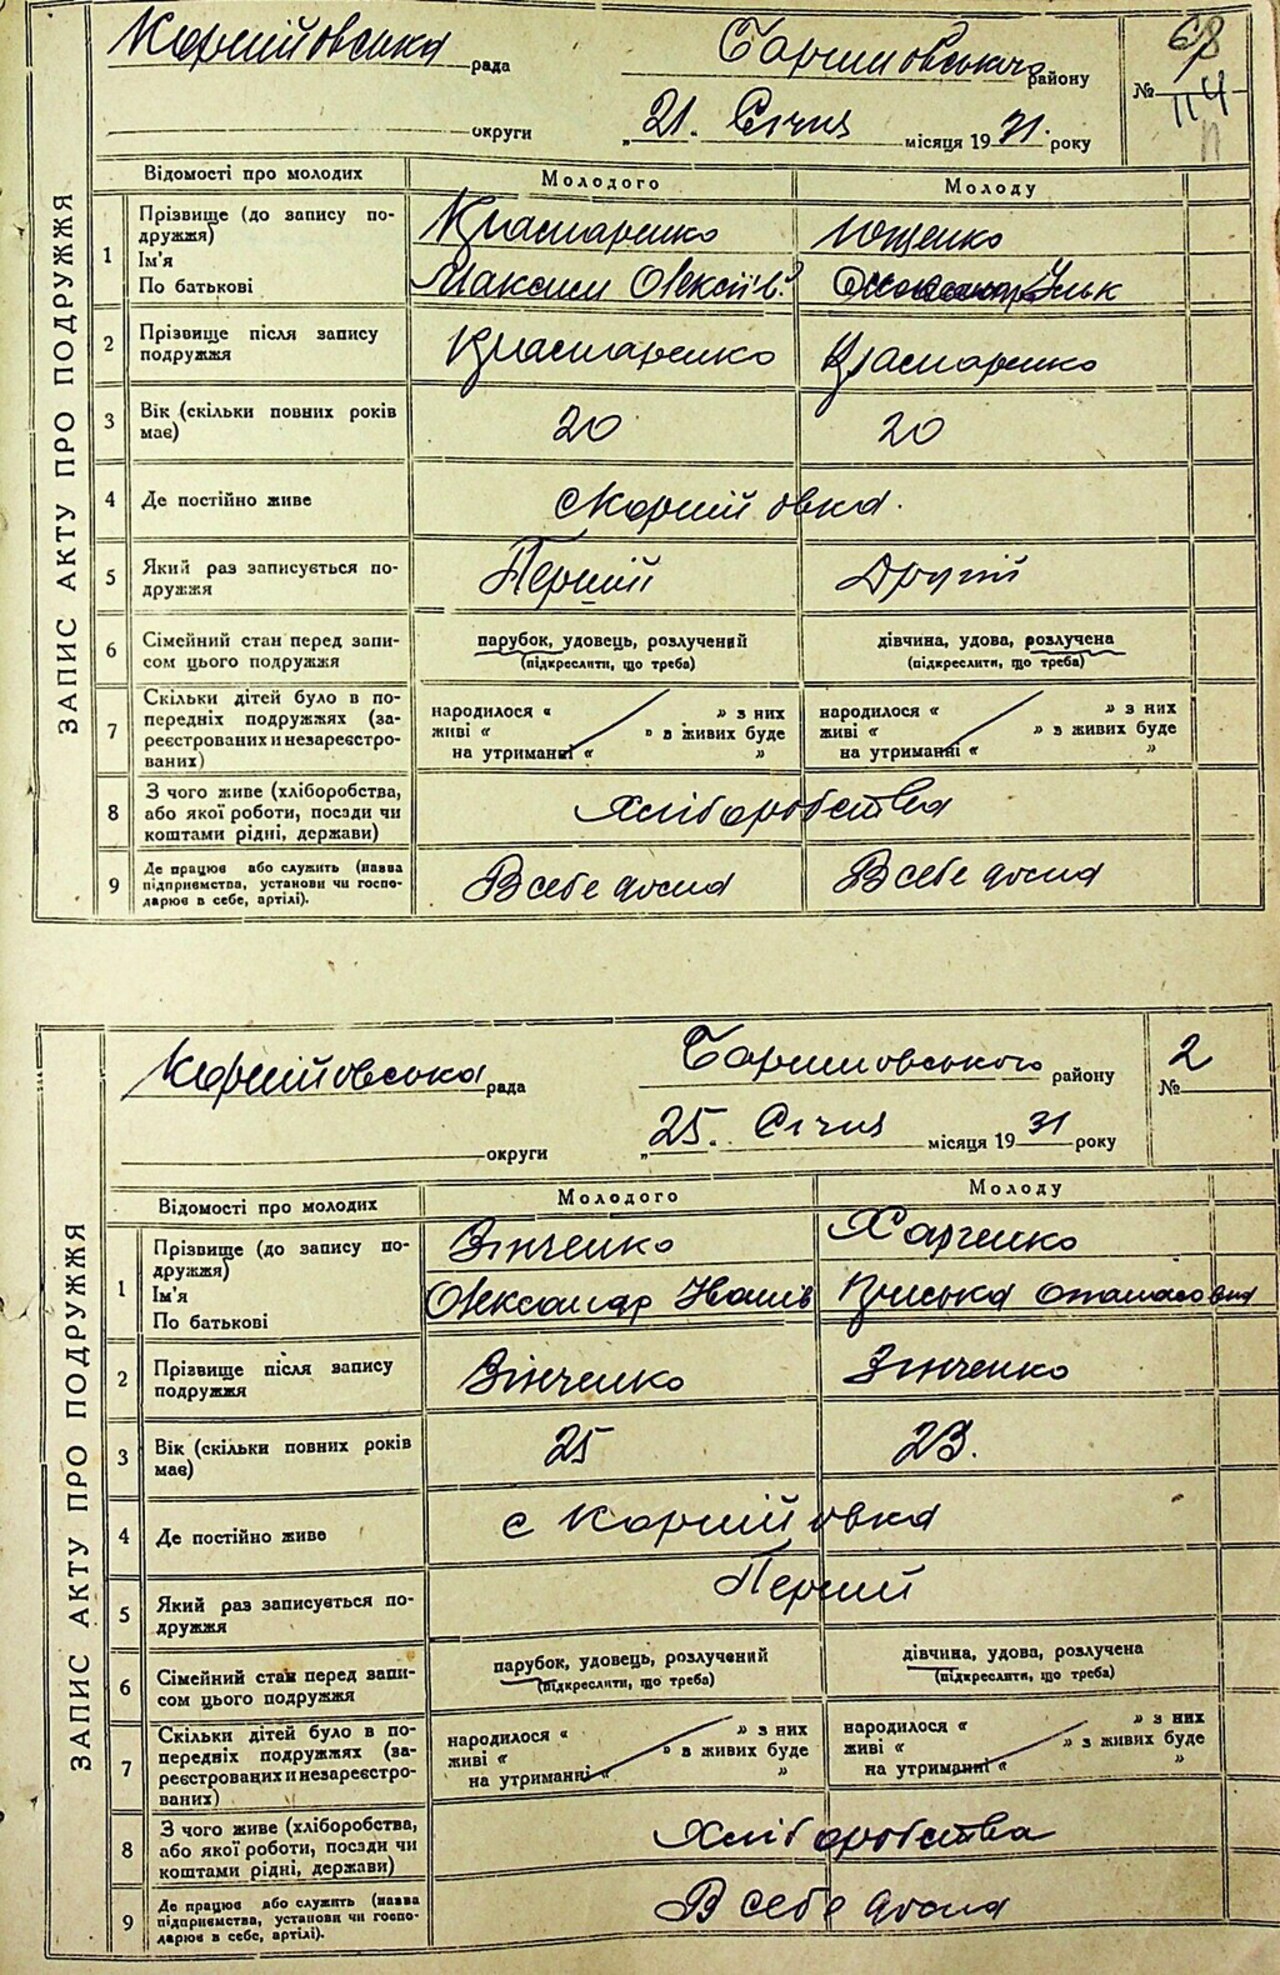 ЗАПИС АКТУ ПРО ПОДРУЖЖЯ
Корнійовська рада Баришовського району
№ 68
114
округи „21“ Січня місяця 1931 року
Відомості про молодих Молодого Молоду
1 Прізвище (до запису подружжя) Ющенко
Ім'я
По батькові Максим Олексіїв.
2 Прізвище після запису подружжя
3 Вік (скільки повних років має) 20 20
4 Де постійно живе с Корнійовка.
5 Який раз записується подружжя Перший Другій
6 Сімейний стан перед записом цього подружжя парубок, удовець, розлучений (підкреслити, що треба) дівчина, удова, розлучена (підкреслити, що треба)
7 Скільки дітей було в попередніх подружжях (зареєстрованих и незареєстрованих) народилося « » з них живі « » в живих буде на утриманні « » народилося « » з них живі « » в живих буде на утриманні « »
8 З чого живе (хліборобства, або якої роботи, посади чи коштами рідні, держави) Хліборобства
9 Де працює або служить (назва підприємства, установи чи господарює в себе, артілі). В себе дома В себе дома
ЗАПИС АКТУ ПРО ПОДРУЖЖЯ
Корнійовська рада Баришовського району
№ 2
округи „25“ Січня місяця 1931 року
Відомості про молодих Молодого Молоду
1 Прізвище (до запису подружжя) Зінченко Харченко
Ім'я
По батькові Олександр Іванів Приська Опанасовна
2 Прізвище після запису подружжя Зінченко Зінченко
3 Вік (скільки повних років має) 25 23.
4 Де постійно живе с Корнійовка
5 Який раз записується подружжя Перший
6 Сімейний стан перед записом цього подружжя парубок, удовець, розлучений (підкреслити, що треба) дівчина, удова, розлучена (підкреслити, що треба)
7 Скільки дітей було в попередніх подружжях (зареєстрованих и незареєстрованих) народилося « » з них живі « » в живих буде на утриманні « » народилося « » з них живі « » в живих буде на утриманні « »
8 З чого живе (хліборобства, або якої роботи, посади чи коштами рідні, держави) Хліборобства
9 Де працює або служить (назва підприємства, установи чи господарює в себе, артілі). В себе дома